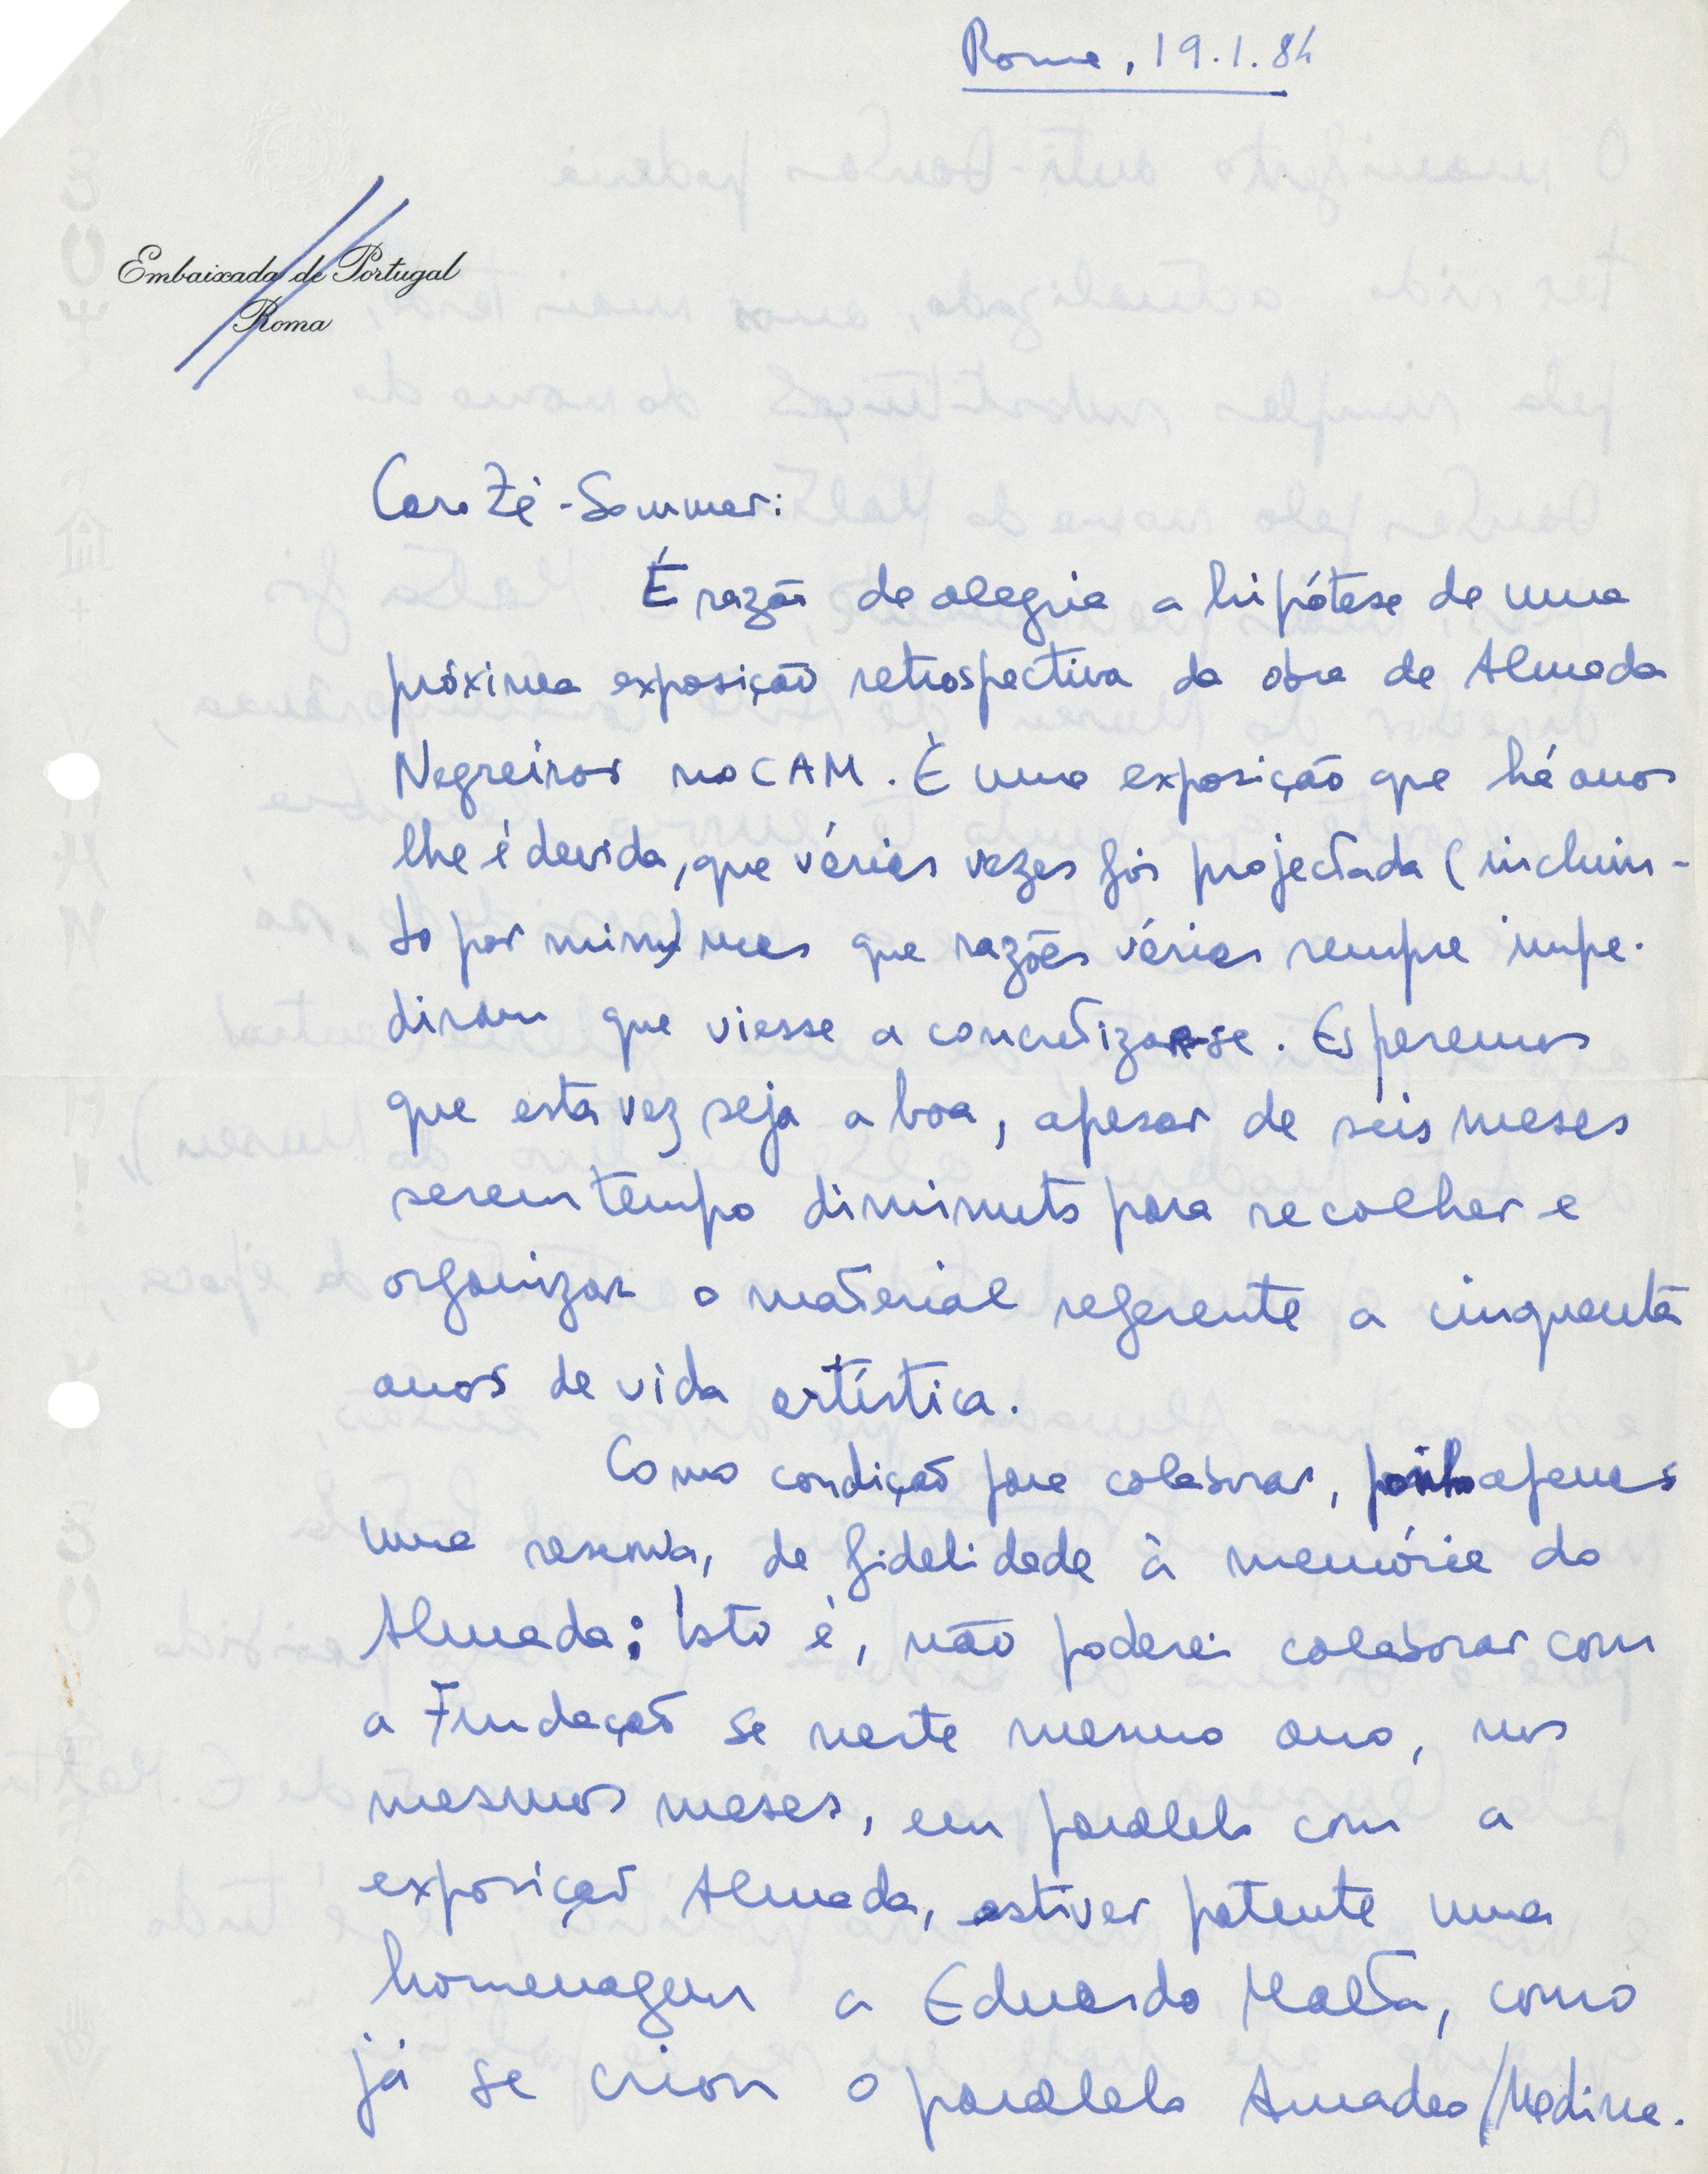 Roma, 19.1.84
Embaixada de Portugal
Roma
Caro Zé-Sommer:
É razão de alegria a hipótese de uma
próxima exposição retrospectiva da obra de Almada
Negreiros no CAM. É uma exposição que há anos
lhe é devida, que várias vezes foi projectada (inclui-
to por mim) mas que razões várias sempre impe-
diram que viesse a concretizar-se. Esperemos
que esta vez seja a boa, apesar de seis meses
serem tempo diminuto para recolher e
organizar o material referente a cinquenta
anos de vida artística.
Como condição para colaborar, ponho apenas
uma reserva, de fidelidade à memória do
Almada; Isto é, não poderei colaborar com
a Fundação se neste mesmo ano, nos
mesmos meses, em paralelo com a
exposição Almada, estiver patente uma
homenagem a Eduardo Malta, como
já se criou o paralelo Amadeo/Medina.